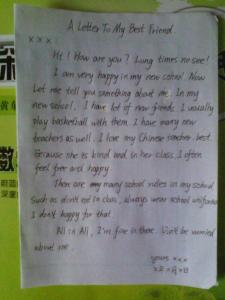 A Letter To My Best Friend
×××:
Hi! How are you? Lung times no see!
I am very happy in my new school. Now
Let me tell you something about me. In my
new school. I have lot of new friends. I usually
play basketball with them. I have many new
teachers as well. I love my Chinese teacher best.
Because she is kind and in her class, I often
feel free and happy.
There are many school rules in my school
Such as don't eat in class, always wear school uniforms
I don't happy for that.
All in All, I'm fine in there. Don't be worried
about me.
yours ×××
深
数